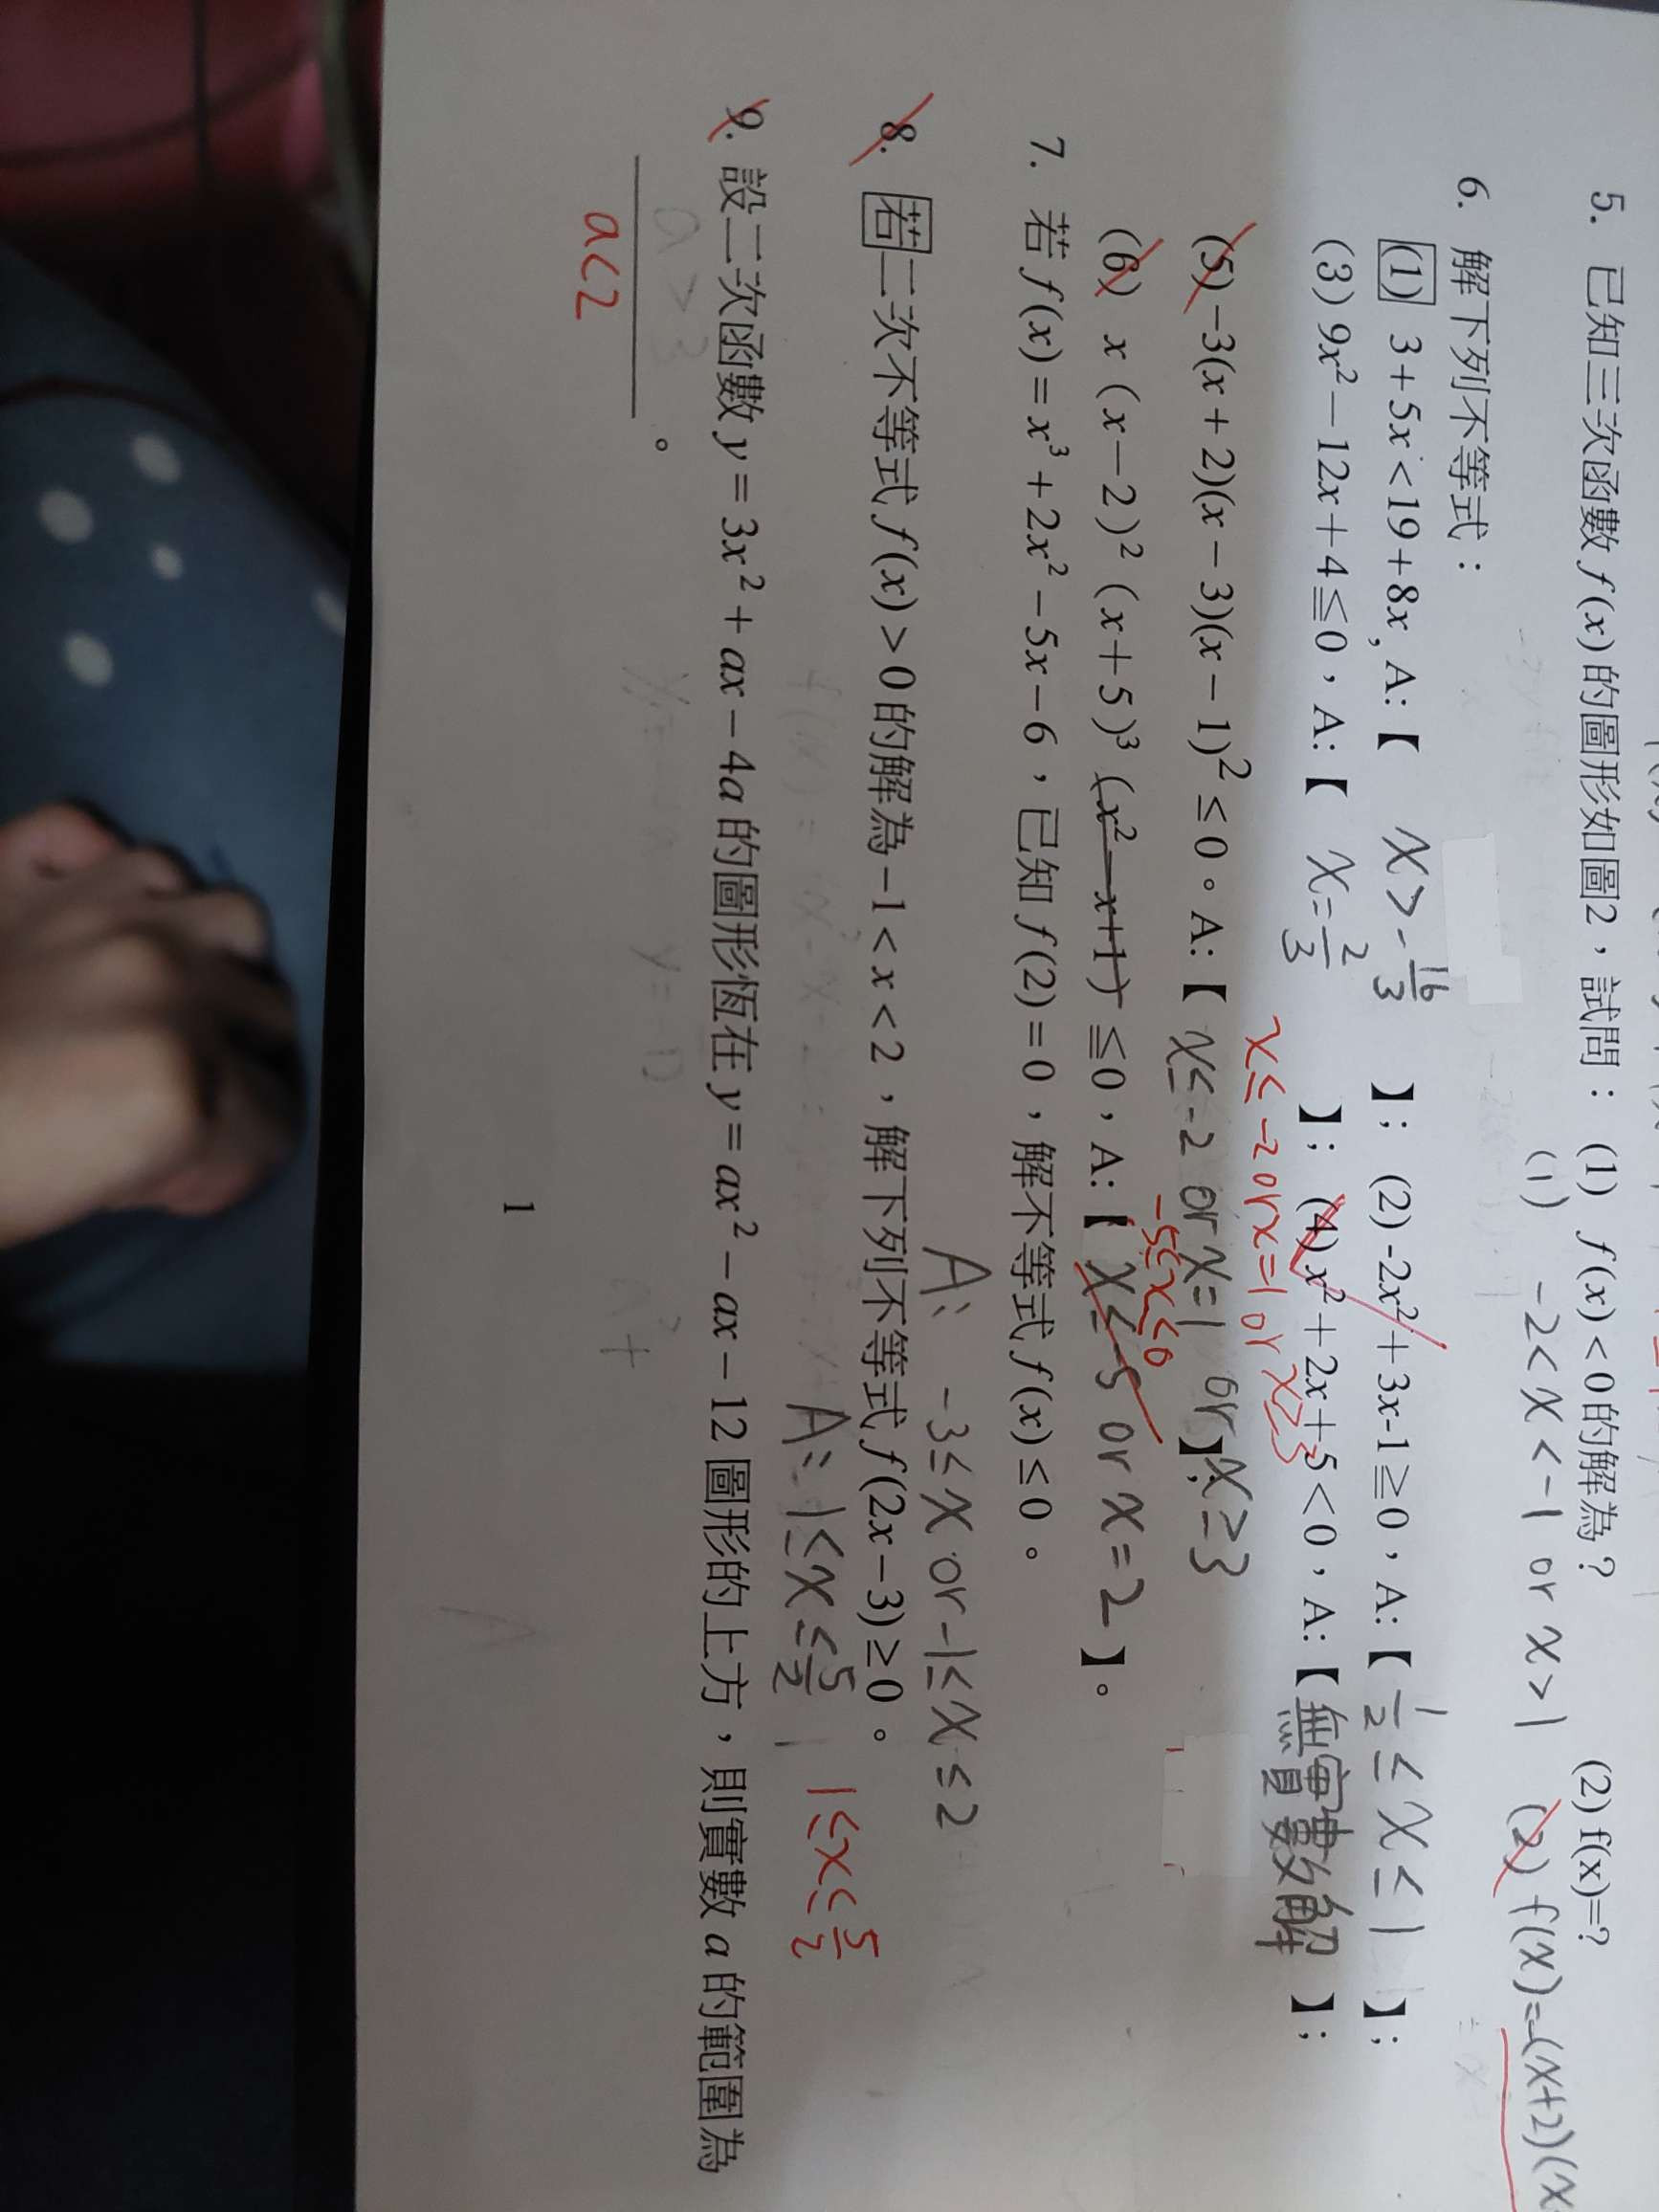 5. 已知三次函數 f(x) 的圖形如圖2，試問： (1) f(x)<0的解為？ (2) f(x)=?
(1) -2<x<-1 or x>1 (2) f(x)=-(x+2)(x
6. 解下列不等式：
(1) 3+5x<19+8x, A:【 x>-16/3 】; (2) -2x²+3x-1≧0，A:【 1/2≤x≤1 】;
(3) 9x²－12x＋4≦0，A:【 x=2/3 】; (4) x²＋2x＋5<0，A:【無實數解】;
x≤-2 or x=1 or x≥3
(5) -3(x+2)(x-3)(x-1)²≤0。A:【 x≤-2 or x=1 or x≥3 】;
-5≤x≤0
(6) x（x－2）²（x＋5）³（x²－x＋1）≦0，A:【 x≤-5 or x=2 】。
7. 若 f(x)=x³+2x²-5x-6，已知 f(2)=0，解不等式 f(x)≤0。
A: -3≤x or -1≤x≤2
8. 若二次不等式 f(x)>0的解為 -1<x<2，解下列不等式 f(2x-3)≥0。
A: -1≤x≤5/2 1≤x≤5/2
9. 設二次函數 y=3x²+ax-4a 的圖形恆在 y=ax²-ax-12 圖形的上方，則實數 a 的範圍為
a>3 。
a<2
1